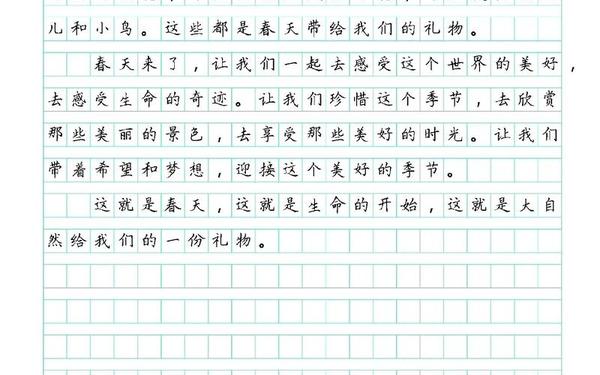 儿和小鸟。这些都是春天带给我们的礼物。
春天来了，让我们一起去感受这个世界的美好，
去感受生命的奇迹。让我们珍惜这个季节，去欣赏
那些美丽的景色，去享受那些美好的时光。让我们
带着希望和梦想，迎接这个美好的季节。
这就是春天，这就是生命的开始，这就是大自
然给我们的一份礼物。